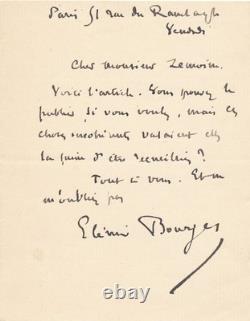 Paris 51 rue du Ranelagh
Vendredi
Cher Monsieur Lemoine.
Voici l'article. Vous pouvez le
publier, si vous voulez, mais ces
choses valaient-elles
la peine d'être recueillies ?
Tout à vous. Et ne
m'oubliez pas
Elémir Bourges
thecollectibles